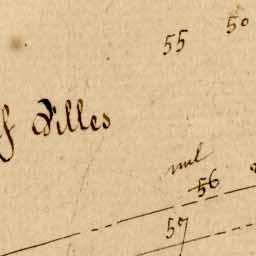 50
55
of Dilles
nul
56
57